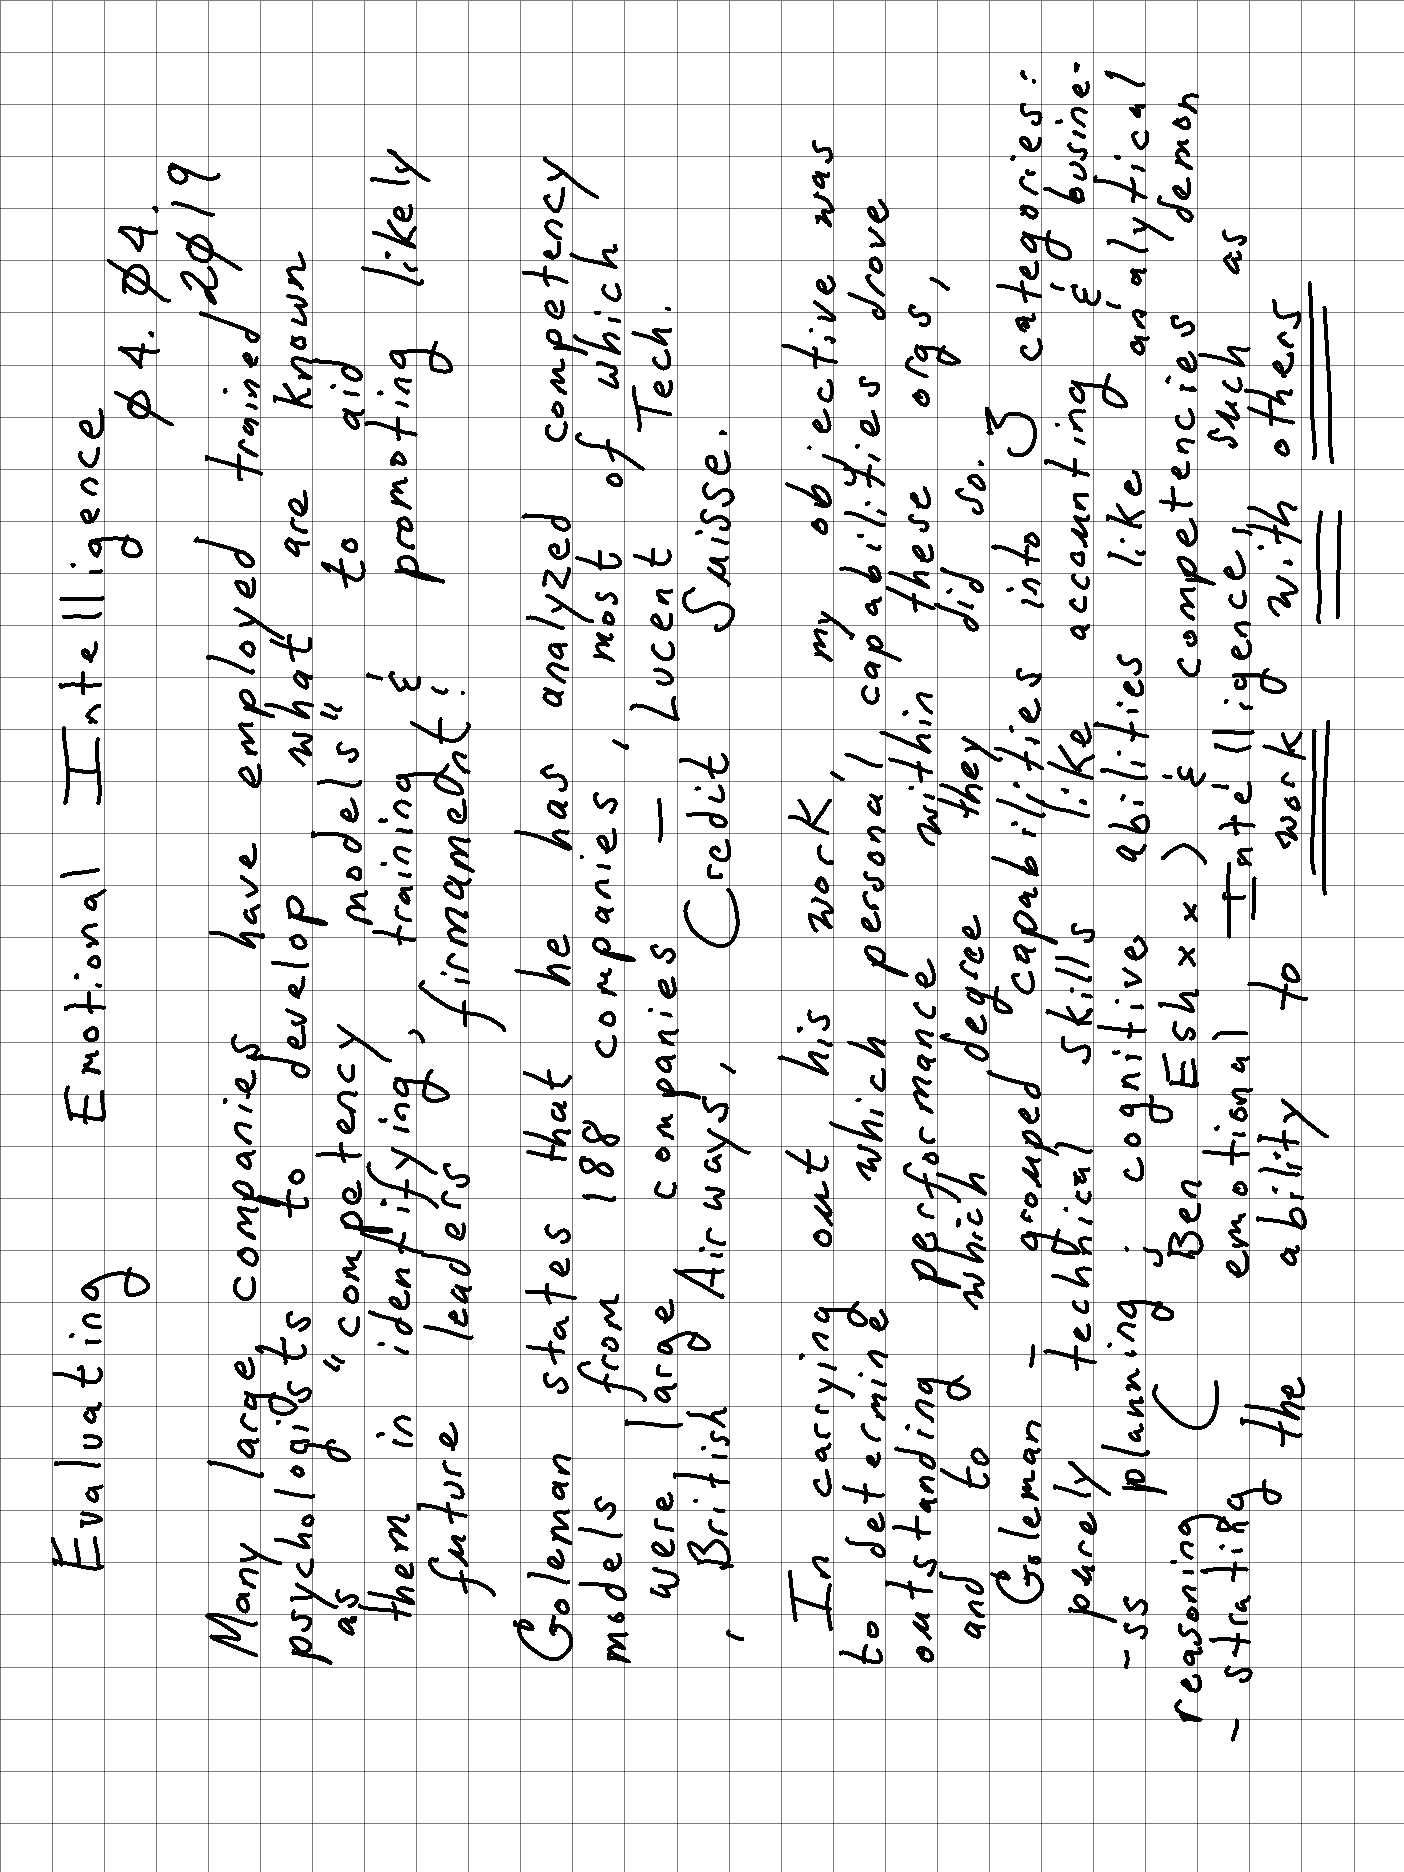 Evaluating Emotional Intelligence
Ø4. Ø4.
2Ø19
Many large companies have employed trained
psychologists to develop what are known
as "competency models" to aid
them in identifying, training & promoting likely
future leaders firmament!
Goleman states that he has analyzed competency
models from 188 companies, most of which
were large companies – Lucent Tech.
, British Airways, Credit Suisse.
In carrying out his work, my objective was
to determine which personal capabilities drove
outstanding performance within these orgs,
and to which degree they did so.
Goleman – grouped capabilities into 3 categories:
purely technical skills like accounting & busine-
-ss planning; cognitive abilities like analytical
reasoning ( Ben Eshxx ) & competencies demon
- strating emotional Intelligence, such as
the ability to work with others